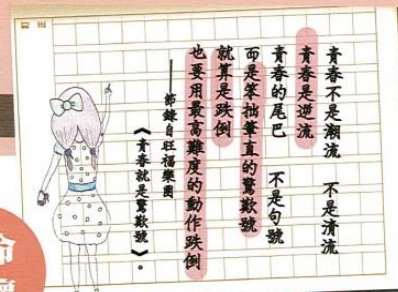 青春不是潮流　不是清流
青春是逆流
青春的尾巴　不是句號
而是笨拙筆直的驚歎號
就算是跌倒
也要用最高難度的動作跌倒
——節錄自旺福樂團
《青春就是驚歎號》。
命